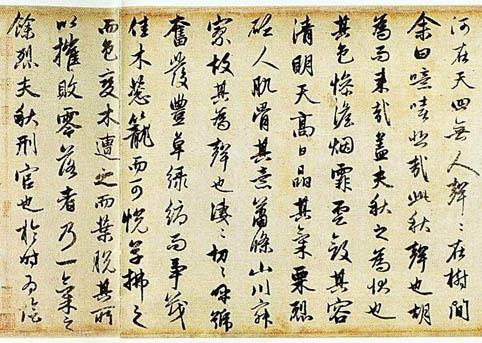 河在天四無人聲〻在樹間
余曰噫嘻悲哉此秋聲也胡
為而来哉蓋夫秋之為狀也
其色慘澹烟霏雲斂其容
清明天高日晶其氣栗烈
砭人肌骨其意蕭條山川寂
寥故其為聲也凄〻切〻呼號
奮發豐草緑縟而爭茂
佳木葱籠而可悅草拂之
而色變木遭之而葉脫其所
以摧敗零落者乃一氣之
餘烈夫秋刑官也於時為陰